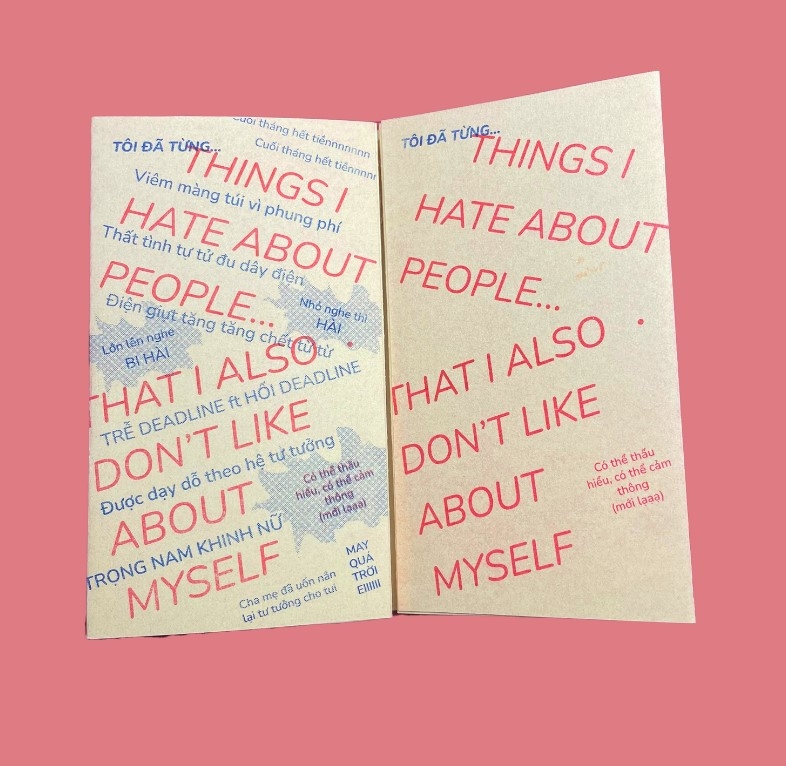 TÔI ĐÃ TỪNG...
Cuối tháng hết tiềnnnnnnn
Cuối tháng hết tiềnnnnr
THINGS I
Viêm màng túi vì phung phí
HATE ABOUT
Thất tình tự tử đu dây điện
PEOPLE...
Điện giựt tăng tăng chết từ từ
Nhỏ nghe thì
HÀI
Lớn lên nghe
BI HÀI
THAT I ALSO
TRỄ DEADLINE ft HỐI DEADLINE
DON'T LIKE
Được dạy dỗ theo hệ tư tưởng
ABOUT
Có thể thấu
hiểu, có thể cảm
thông
(mới lạạạ)
TRỌNG NAM KHINH NỮ
MYSELF
Cha mẹ đã uốn nắn
lại tư tưởng cho tui
MAY
QUÁ
TRỜI
EIIIIII
TÔI ĐÃ TỪNG...
THINGS I
HATE ABOUT
PEOPLE...
THAT I ALSO
DON'T LIKE
ABOUT
MYSELF
Có thể thấu
hiểu, có thể cảm
thông
(mới lạạạ)